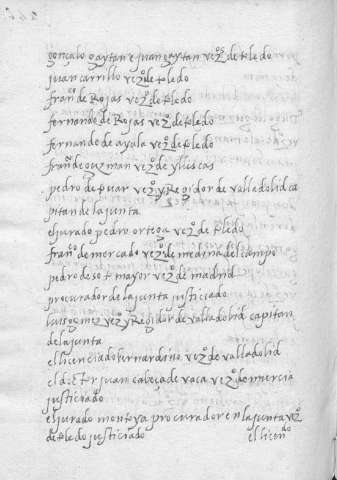 gonçalo gaytan e juan gaytan vezºs de toledo
juan carrillo vezº de toledo
franº de Rojas vezº de toledo
fernando de Rojas vezº de toledo
fernando de ayala vezº de toledo
franº de guzman vezº de yllescas
pedro de tovar vezº y Regidor de valladolid ca
pitan de la junta
el jurado pedro ortega vezº de toledo
franº de mercado vezº de medina del campo
pedro de soto mayor vezº de madrid
procurador de la junta justiciado
luis gomez vezº y Regidor de valladolid capitan
de la junta
el licenciado bernardino vezº de valladolid
el dotor juan cabeça de vaca vezº de murcia
justiciado
el jurado montoya procurador en la junta vezº
de toledo justiciado el licendo